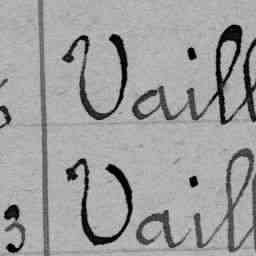 Vaill
3 Vaill